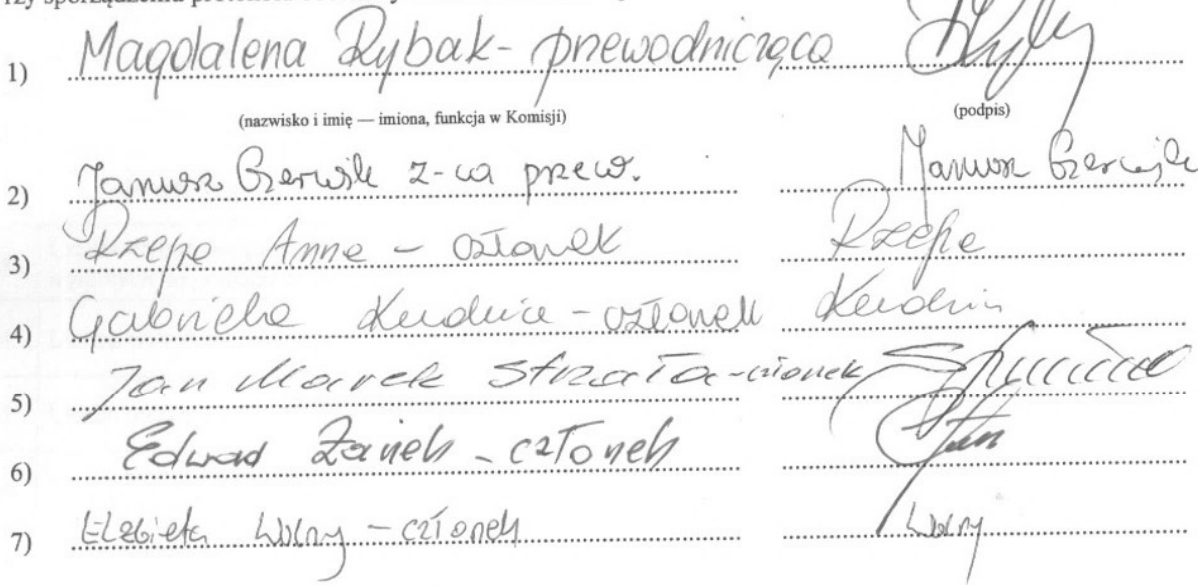 1) Magdalena Rybak - przewodnicząca
(nazwisko i imię — imiona, funkcja w Komisji) (podpis)
2) Janusz z-ca przew. Janusz
3) Rzepa Anna - członek Rzepa
4) Gabriela - członek
5) Jan Marek Strzała - członek
6) Edward - członek
7) Elżbieta Wolny - członek Wolny